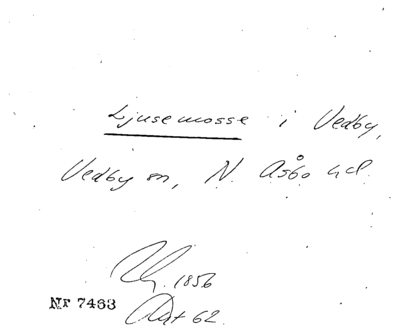 Ljusemosse i Vedby,
Vedby sn, N. Åsbo hd.
1856
Nr 7433
Akt 62